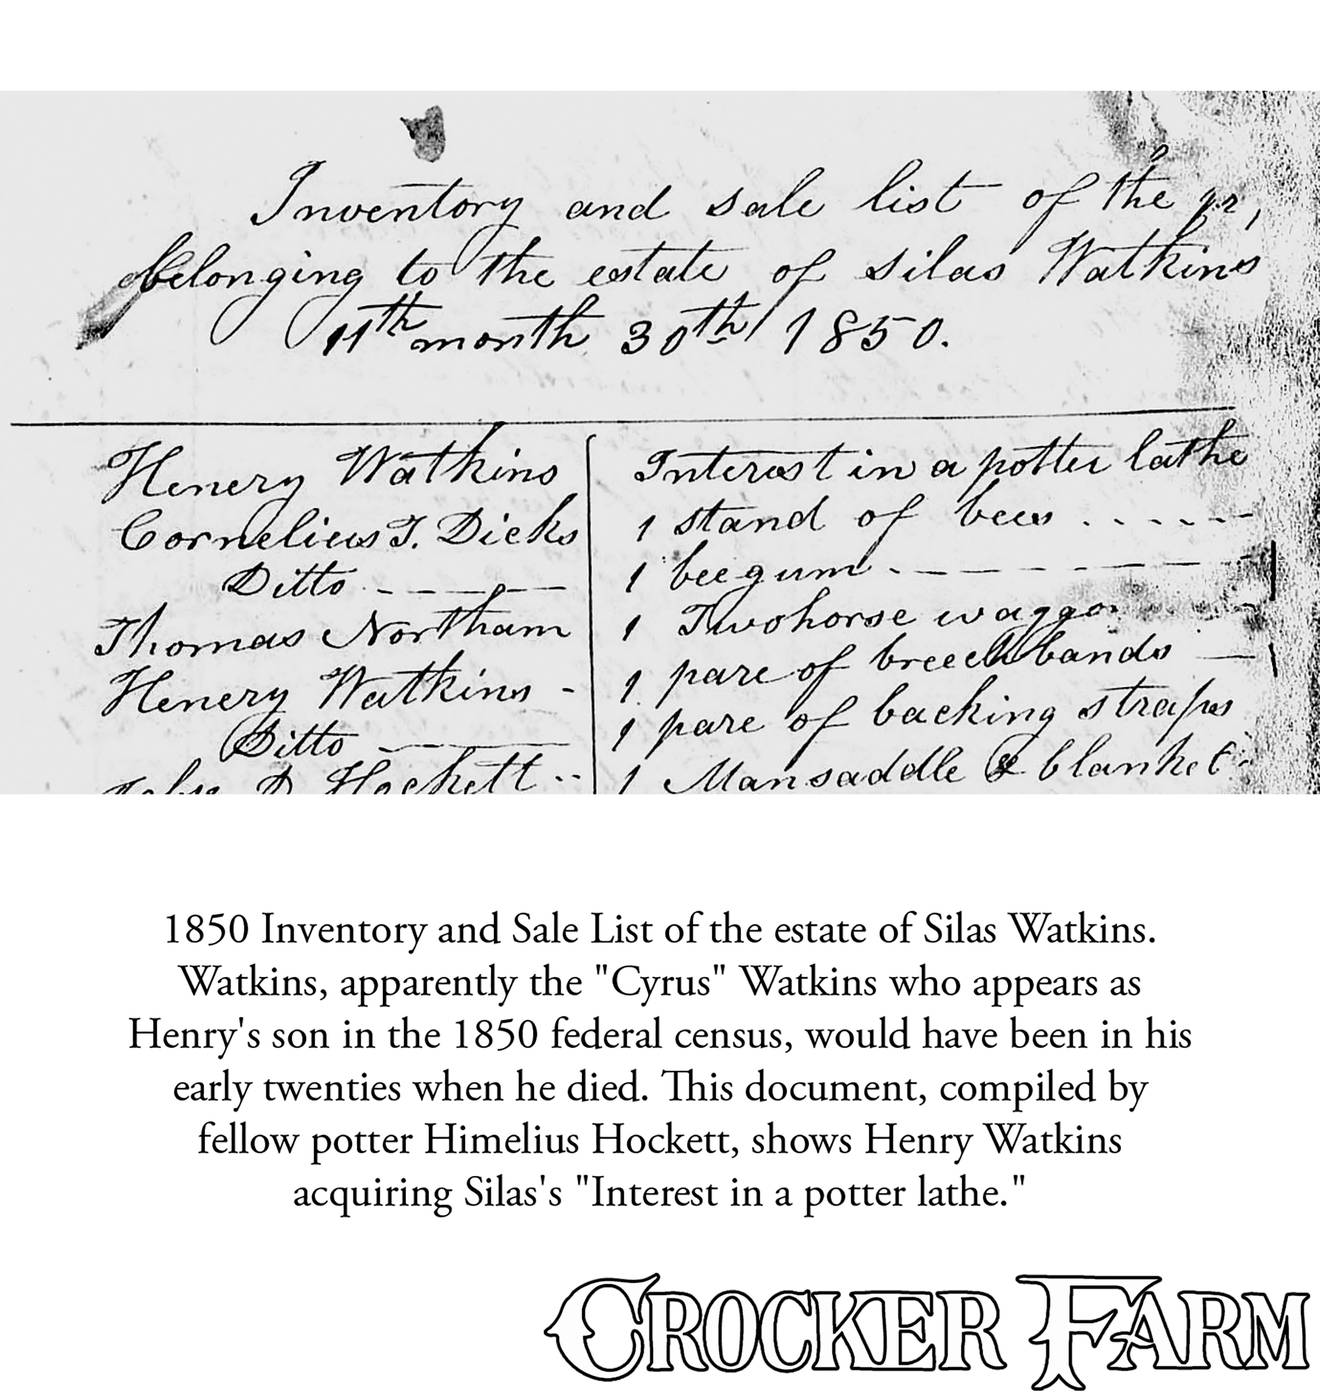 Inventory and sale list of the
belonging to the estate of Silas Watkins
11th month 30th 1850.
Henery Watkins Interest in a potter lathe
Cornelius T. Dicks 1 stand of bees . . . . - -
Ditto - - - - - 1 beegum - - - - - -
Thomas Northam 1 Twohorse waggon
Henery Watkins - 1 pare of breech bands -
Ditto - - - 1 pare of backing straps
D. Hockett - - 1 Mansaddle & blanket
1850 Inventory and Sale List of the estate of Silas Watkins.
Watkins, apparently the "Cyrus" Watkins who appears as
Henry's son in the 1850 federal census, would have been in his
early twenties when he died. This document, compiled by
fellow potter Himelius Hockett, shows Henry Watkins
acquiring Silas's "Interest in a potter lathe."
CROCKER FARM